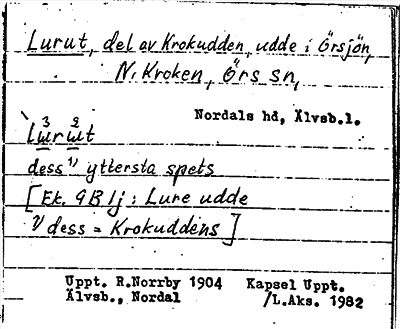 Lurut, del av Krokudden, udde i Örsjön,
N. Kroken, Örs sn,
Nordals hd, Älvsb.l.
lu³ru²t
dess ¹⁾ yttersta spets
[Ek. 9B 1j : Lure udde
¹⁾ dess = Krokuddens]
Uppt. R.Norrby 1904 Kapsel Uppt.
Älvsb., Nordal /L.Aks. 1982